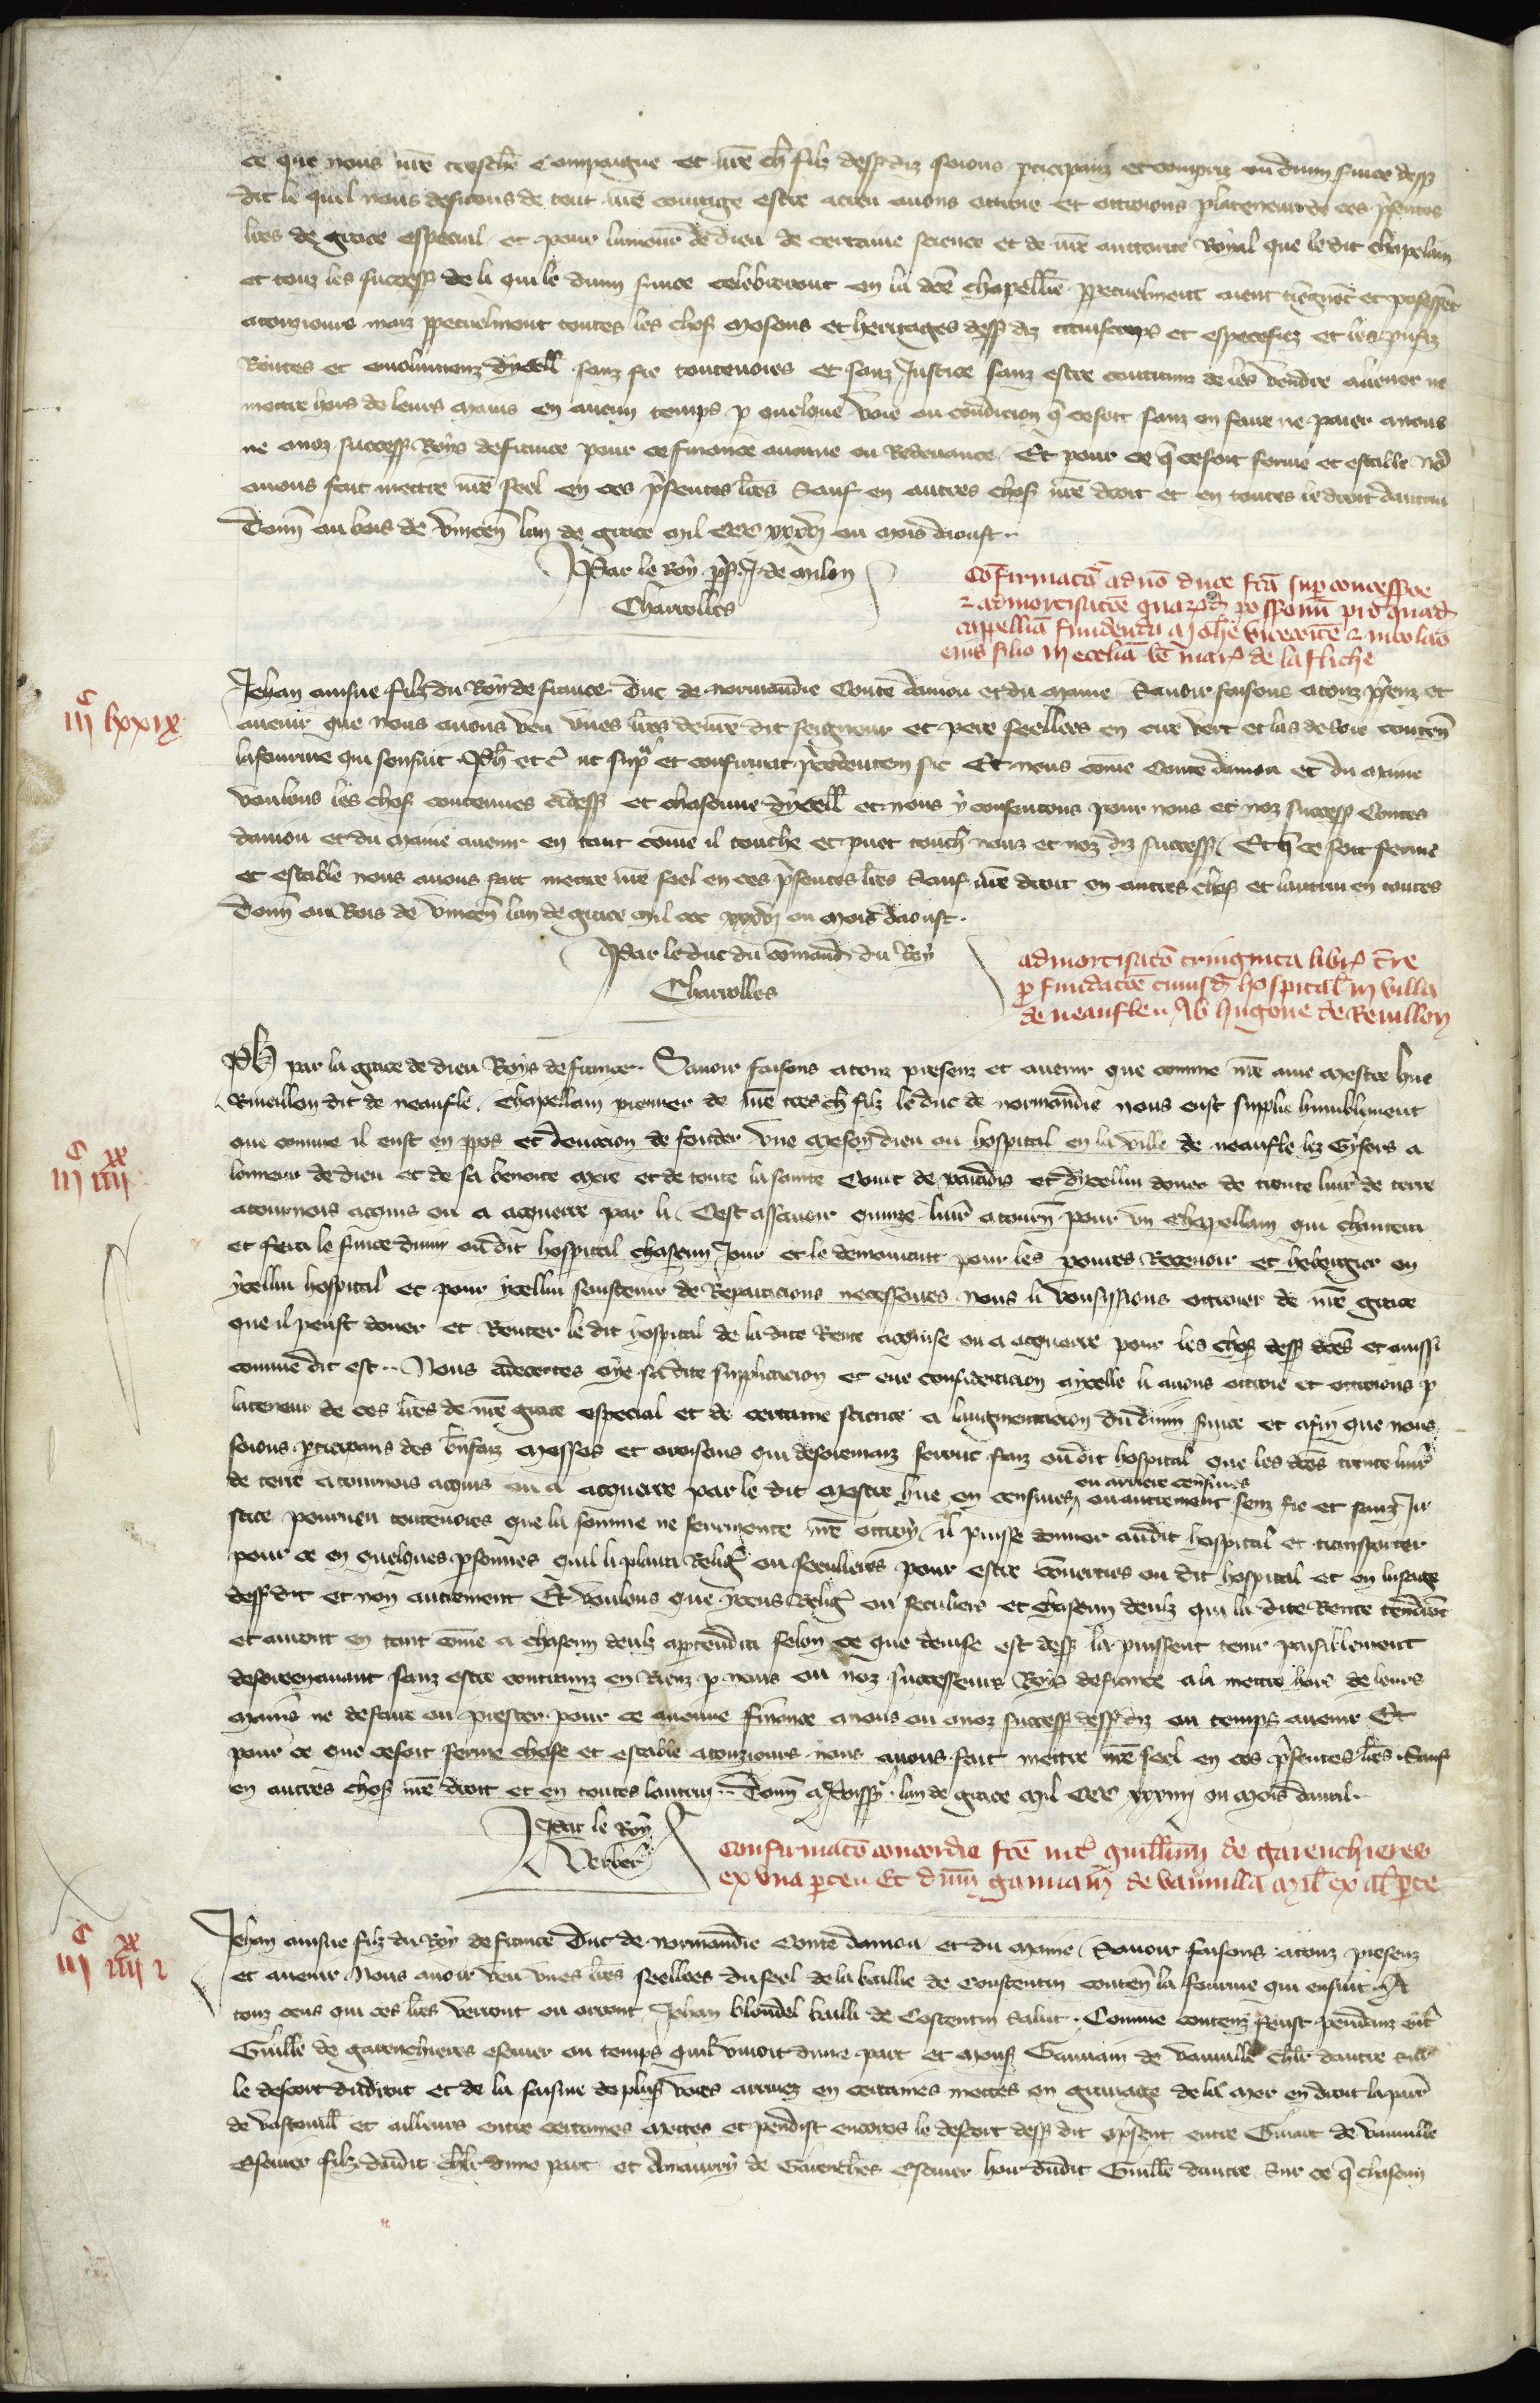 ce que nous nrē treschē Compaigne et nrē chr̄ filz dessusdiz soions p̲ticipanz et compris ou divin service dess
dit le quil nous desirons de tout nrē courage estre acreu avons ottroie et ottroions p̲ la teneur de ces p̄sentes
lrēs de grace especial et pour lamour de dieu de certaine science et de nrē auctorite Royal que le dit Chapelain
et touz les success̄ de li qui le divin service celebreront en la dcē chapellēie p̲petuelment aient tiēgnēt et possessēt
atouzjours maiz p̲petuelment toutes les chos̄ mesons et heritages dess diz et especefiez et les p̲ufiz
Rentes et emolumenz dycell̄ sanz fie toutevoies et sanz Justice sanz estre contrainz de les vendre aliener ne
mettre hors de leurs mains en aucun temps p̲ quelque voie ou condicion q̄ ce soit sanz en faire ne paier a nous
ne a noz success̄ Roys de france pour ce finance aucune ou Redevance Et pour ce q̄ ce soit ferme et estable no9
avons fait mettre nrē seel en ces p̄sentes lrēs Sauf en autres chos̄ nrē droit et en toutes le droit dautrui
Donn̄ au bois de Vincenn̄ lan de grace mil CCC xxxvj ou mois daoust.
Par le Roy p̄s̄. J. de melun
Charrolles
Confirmatō a dn̄o duce fc̄a sup̲ concessioe
⁊ admortisatōe quar̄d̄ possessionū pro quad̄
cappellīa fundenda a Joh̄e vicecōite ⁊ nicolao
eius filio in ecclīa bē mar̄ de la fliche
iijᶜ lxxix
Jehan ainsne filz du Roy de france Duc de normandie Conte danjou et du maine Savoir faisons a touz p̄senz et
avenir que nous avons veu unes lrēs de nrē dit seigneur et pere seellees en cire vert et las de soie conten̄
la fourme qui sensuit Ph̄ et c̄ ut sup̲ᵃ et confirmat p̄cedentem sic Et nous come Conte danjou et du maine
voulons les chos̄ contenues ci dess̄ et chascune dycell̄ et nous y consentons pour nous et noz success̄ Contes
danjou et du maine avenir en tant come il touche et puet touch̄ nous et noz diz success̄ Et q̄ ce soit ferme
et estable nous avons fait mettre nrē seel en ces p̄sentes lrēs Sauf nrē droit en autres chos̄ et lautrui en toutes
Donn̄ au Bois de Vincenn̄ lan de grace mil CCC xxxvj ou mois daoust.
Par le duc du cōmand̄ du Roy
Charrolles
admortisatō triginta libr̄ t̄re
p̲ fundacōe cuiusd̄ hospital̄ in villa
de neaufleu Ab hugone de Revillon
Ph̄ par la grace de dieu Roys de france. Savoir faisons a touz presenz et avenir que comme nrē ame mestre hue
Rineullon dit de neaufle, Chapellain premier de nrē tres ch̄ filz le duc de normandie nous eust supplie humblement
que comme il eust en p̲pos et devocion de fonder une meson dieu ou hospital en la ville de neaufle lez Gysors a
lonneur de dieu et de sa benoite mere et de toute la sainte Court de paradis et dycellui doner de trente livr̄ de terre
a tournois acquis ou a acquerre par li Cest assavoir quinze livr̄ a tourn̄ pour un Chapellain qui chantera
et fera le service divin ou dit hospital chascun Jour et le demourant pour les povres Recevoir et hebergier en
ycellui hospital et pour ycellui soustenir de Reparacions necessaires nous li vousissions ottroier de nrē grace
que il peust doner et Renter le dit hospital de la dite Rente acquise ou a acquerre pour les chos̄ dess̄ dcēs et aussi
comme dit est. Nous adecertes oye sa dite supplicacion et eue consideracion a ycelle li avons ottroie et ottroions p̲
la teneur de ces lrēs de nrē grace especial et de certaine science a laugmentacion du divin service et afin que nous
soions p̲ticipans des bn̄faiz messes et oroisons qui desoremaiz seront faiz ou dit hospital que les dcēs trente livr̄
de terre a tournois acquis ou a acquerre par le dit mestre hue en censives ou arriere censives ou autrement senz fie et sanz Ju
stice pourveu toutevoies que la somme ne seurmonte nrē ottroy il puisse donner au dit hospital et transporter
pour ce en quelques p̲sonnes quil li plaira Reliḡ ou seculieres pour estre converties ou dit hospital et en lusage
dess̄ dit et non autrement Et voulons que yceus Reliḡ ou seculiers et chascun deulz qui la dite Rente tendrōt
et auront en tant come a chascun deulz appartendra selon ce que devise est dess̄ la puissent tenir paisiblement
desorenavant sanz estre contrainz en Rienz p̲ nous ou noz successeurs Roys de france a la mettre hors de leurs
mains ne de faire ou prester pour ce aucune finance a nous ou a noz success̄ dess̄ diz ou temps avenir Et
pour ce que ce soit ferme chose et estable a touzjours nous avons fait mettre nrē seel en ces p̄sentes lrēs Sauf
en autres chos̄ nrē droit et en toutes lautrui. Donn̄ a Poissy. lan de grace mil CCC xxxiiij ou mois davril.
Par le Roy
Verber̄
iijᶜ iiijˣˣ
Confirmatō concordie fcē int̄ guill̄m de garenchieres
ex una p̲te Et dn̄m gauuain̄ de vauvilla mil̄ ex al̄ p̲te
iijᶜ iiijˣˣ i
Jehan ainsne filz du Roy de france Duc de normandie Conte danjou et du maine Savoir faisons a touz presenz
et avenir Nous avoir veu unes lrēs seellees du seel de la baillie de Constentin conten̄ la fourme qui ensuit. A
touz ceus qui ces lrēs verront ou orront Jehan blondel bailli de Costentin Salut. Comme contenz feust pendanz ent̄
Guill̄e de garenchieres escuier ou temps quil vivoit dune part et mons̄ Gauvain de vauville chlr̄ dautre sur
le descort du droit et de la saisine de plus̄ voies arrivez en certaines mettes en gravage de la mer en droit la parr̄
de vastevill̄ et ailleurs entre certaines mettes et pendist encores le descort dess̄ dit a p̄sent entre Girart de vauville
Escuier filz du dit chlr̄ dune part et Amaurry de Garench̄es Escuier hoir du dit Guill̄e dautre Sur ce q̄ chascun